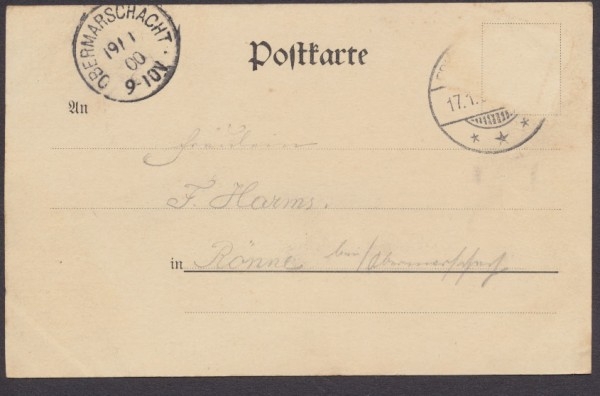 OBERMARSCHACHT.
19/1
00
9-10V.
Postkarte
17.1.
An
Fräulein
F. Harms.
in Rönne bei/Obermarschacht